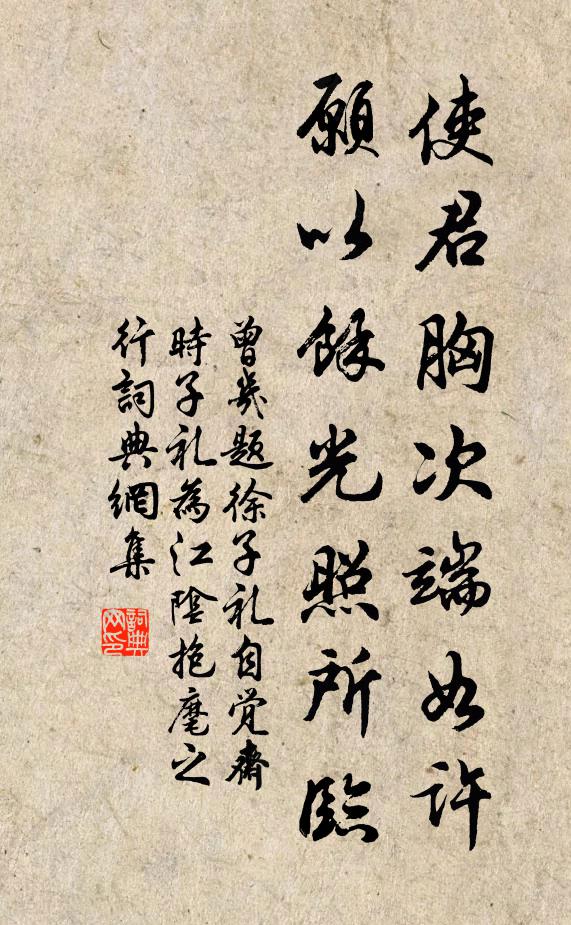 使君胸次端如許
願以餘光照所臨
曾幾題徐子礼自觉齋
時子礼為江陰抱麾之
行詞典網集
詞典网印